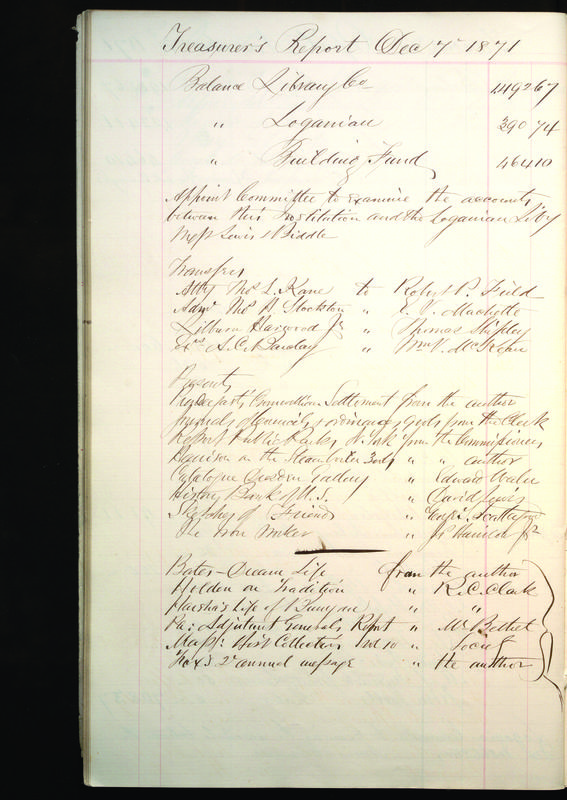 Treasurer's Report Dec 7 1871
Balance Library Co 1419267
" Loganian 390 74
" Building Fund 46410
Appoint Committee to examine the accounts
between this Institution and the Loganian Liby
Lewis & Biddle
Transfers
Thos L. Kane to Robert P. Field
Admr Thos B. Stockton " E. V. Machette
Lilburn Harwood Jr " Thomas Shipley
Exrs A. C. Barclay " Wm V. McKean
Presents
Connecticut Settlement from the author
Journals of Councils & ordinances from the Clerk
Report Public Parks N. York from the Commissioners
Harrison on the Steam boiler " " author
Catalogue Gallery " Edward
History Bank of U.S. " David Lewis
Sketches of Friends "
The Iron Worker "
Bates - Dream Life from the author
Holden on Tradition " R. C. Clark
Life of Bunyan " "
Pa: Adjutant Generals Report "
Mass: Hist Collections Vol 10 " Society
2d annual message " the author